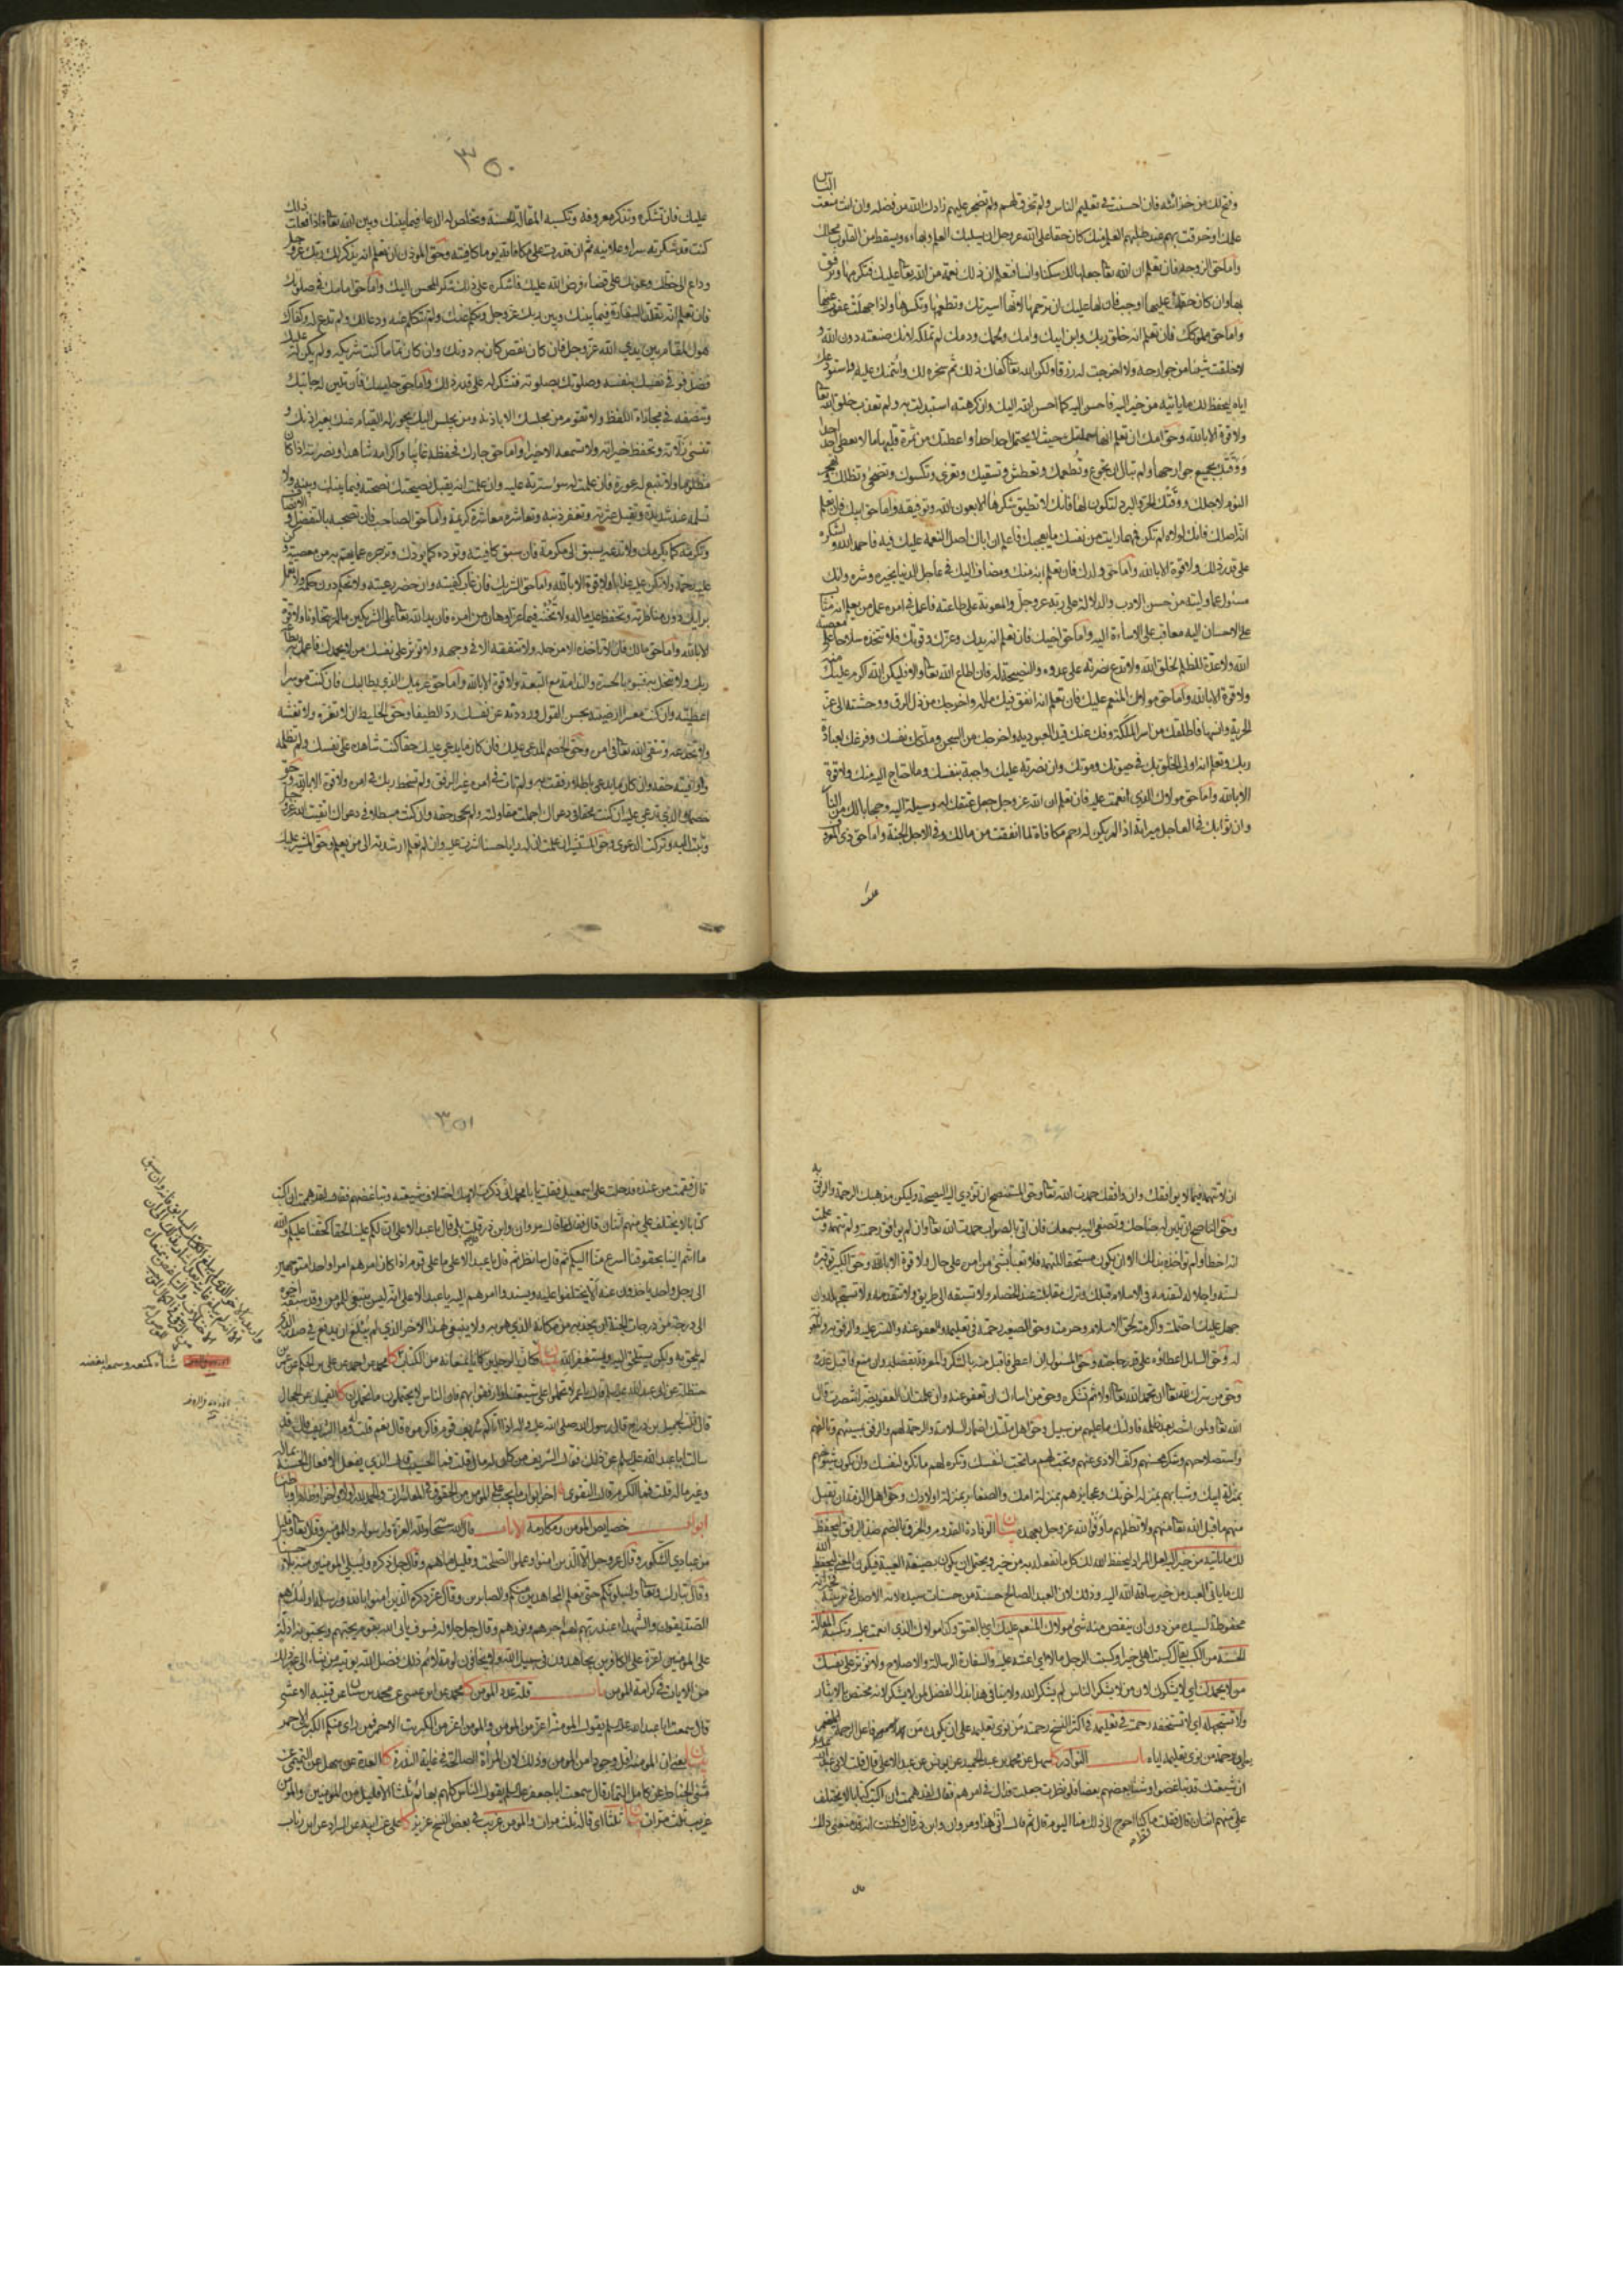 وفتح لك من خزائنه فان احسنت في تعليم الناس ولم تخرق بهم ولم تضجر عليهم زادك الله من فضله وان انت منعت الناس
علمك او خرقت بهم عند طلبهم العلم منك كان حقا على الله عز وجل ان يسلبك العلم وبهاءه ويسقط من القلوب محلك
واما حق الزوجة فان تعلم ان الله تعالى جعلها لك سكنا وانسا فتعلم ان ذلك نعمة من الله تعالى عليك فتكرمها وترفق
بها وان كان حقك عليها اوجب فان لها عليك ان ترحمها لانها اسيرتك وتطعمها وتكسوها واذا جهلت عفوت عنها
واما حق مملوكك فان تعلم انه خلق ربك وابن ابيك وامك ولحمك ودمك لم تملكه لانك صنعته دون الله و
لا خلقت شيئا من جوارحه ولا اخرجت له رزقا ولكن الله تعالى كفاك ذلك ثم سخره لك وائتمنك عليه واستودعك
اياه ليحفظ لك ما ياتيه من خير اليه فاحسن اليه كما احسن الله اليك وان كرهته استبدلت به ولم تعذب خلق الله تعالى
ولا قوة الا بالله وحق امك ان تعلم انها حملتك حيث لا يحتمل احد احدا واعطتك من ثمرة قلبها ما لا يعطي احد احدا
ووقتك بجميع جوارحها ولم تبال ان تجوع وتطعمك وتعطش وتسقيك وتعرى وتكسوك وتضحى وتظلك وتهجر
النوم لاجلك ووقتك الحر والبرد لتكون لها فانك لا تطيق شكرها الا بعون الله وتوفيقه واما حق ابيك فان تعلم
انه اصلك فانك لولاه لم تكن فمهما رايت من نفسك ما يعجبك فاعلم ان اباك اصل النعمة عليك فيه فاحمد الله واشكره
على قدر ذلك ولا قوة الا بالله واما حق ولدك فان تعلم انه منك ومضاف اليك في عاجل الدنيا بخيره وشره وانك
مسئول عما وليته من حسن الادب والدلالة على ربه عز وجل والمعونة على طاعته فاعمل في امره عمل من يعلم انه مثاب
على الاحسان اليه معاقب على الاساءة اليه واما حق اخيك فان تعلم انه يدك وعزك وقوتك فلا تتخذه سلاحا على معصية
الله ولا عدة للظلم لخلق الله ولا تدع نصرته على عدوه والنصيحة له فان اطاع الله تعالى والا فليكن الله اكرم عليك منه
ولا قوة الا بالله واما حق مولاك المنعم عليك فان تعلم انه انفق فيك ماله واخرجك من ذل الرق ووحشته الى عز
الحرية وانسها فاطلقك من اسر الملكة وفك عنك قيد العبودية واخرجك من السجن وملكك نفسك وفرغك لعبادة
ربك وتعلم انه اولى الخلق بك في حيوتك وموتك وان نصرته عليك واجبة بنفسك وما احتاج اليه منك ولا قوة
الا بالله واما حق مولاك الذي انعمت عليه فان تعلم ان الله عز وجل جعل عتقك له وسيلة اليه وحجابا لك من النار
وان ثوابك في العاجل ميراثه اذا لم يكن له رحم مكافاة لما انفقت من مالك وفي الاجل الجنة واما حق ذي المعروف
عليك
٣٥٠
عليك فان تشكره وتذكر معروفه وتكسبه المقالة الحسنة وتخلص له الدعاء فيما بينك وبين الله تعالى فاذا فعلت ذلك
كنت قد شكرته سرا وعلانية ثم ان قدرت على مكافاته يوما كافيته وحق المؤذن ان تعلم انه يذكر لك ربك عز وجل
وداع الى حظك وعونك على قضاء فرض الله عليك فاشكره على ذلك شكر المحسن اليك واما حق امامك في صلوتك
فان تعلم انه تقلد السفارة فيما بينك وبين ربك عز وجل وتكلم عنك ولم تتكلم عنه ودعا لك ولم تدع له وكفاك
هول المقام بين يدي الله عز وجل فان كان نقص كان به دونك وان كان تماما كنت شريكه ولم يكن له عليك
فضل فوقى نفسك بنفسه وصلوتك بصلوته فتشكر له على قدر ذلك واما حق جليسك فان تلين له جانبك
وتنصفه في مجاراة اللفظ ولا تقوم من مجلسك الا باذنه ومن يجلس اليك يجوز له القيام عنك بغير اذنك و
تنسى زلاته وتحفظ خيراته ولا تسمعه الا خيرا واما حق جارك فحفظه غائبا واكرامه شاهدا ونصرته اذا كان
مظلوما ولا تتبع له عورة فان علمت له سوءا سترته عليه وان علمت انه يقبل نصيحتك نصحته فيما بينك وبينه ولا
تسلمه عند شديدة وتقيل عثرته وتغفر ذنبه وتعاشره معاشرة كريمة واما حق الصاحب فان تصحبه بالتفضل والانصاف
وتكرمه كما يكرمك ولا تدعه يسبق الى مكرمة فان سبق كافيته وتوده كما يودك وتزجره عما يهم به من معصية وكن
عليه رحمة ولا تكن عليه عذابا ولا قوة الا بالله واما حق الشريك فان غاب كفيته وان حضر رعيته ولا تحكم دون حكمه ولا تعمل
برايك دون مناظرته وتحفظ عليه ماله ولا تخنه فيما عز او هان من امره فان يد الله تعالى على الشريكين ما لم يتخاونا ولا قوة
الا بالله واما حق مالك فان لا تاخذه الا من حله ولا تنفقه الا في وجهه ولا تؤثر على نفسك من لا يحمدك فاعمل به بطاعة
ربك ولا تبخل به فتبوء بالحسرة والندامة مع التبعة ولا قوة الا بالله واما حق غريمك الذي يطالبك فان كنت موسرا
اعطيته وان كنت معسرا ارضيته بحسن القول ورددته عن نفسك ردا لطيفا وحق الخليط ان لا تغره ولا تغشه
ولا تخدعه وتتقي الله تعالى في امره وحق الخصم المدعي عليك فان كان ما يدعي عليك حقا كنت شاهده على نفسك ولم تظلمه
واوفيته حقه وان كان ما يدعي باطلا رفقت به ولم تات في امره غير الرفق ولم تسخط ربك في امره ولا قوة الا بالله وحق
خصمك الذي تدعي عليه ان كنت محقا في دعواك اجملت مقاولته ولم تجحد حقه وان كنت مبطلا في دعواك اتقيت الله عز وجل
وتبت اليه وتركت الدعوى وحق المستشير ان علمت ان له رايا حسنا اشرت عليه وان لم تعلم ارشدته الى من يعلم وحق المشير عليك
ان لا تتهمه فيما لا يوافقك وان وافقك حمدت الله تعالى وحق المستنصح ان تؤدي اليه النصيحة وليكن مذهبك الرحمة والرفق به
وحق الناصح ان تلين له جناحك وتصغي اليه بسمعك فان اتى بالصواب حمدت الله تعالى وان لم يوافق رحمته ولم تتهمه وعلمت
انه اخطا ولم تؤاخذه بذلك الا ان يكون مستحقا للتهمة فلا تعبا بشئ من امره على حال ولا قوة الا بالله وحق الكبير توقيره
لسنه واجلاله لتقدمه في الاسلام قبلك وترك مقابلته عند الخصام ولا تسبقه الى طريق ولا تتقدمه ولا تستجهله وان
جهل عليك احتملته واكرمته لحق الاسلام وحرمته وحق الصغير رحمته في تعليمه والعفو عنه والستر عليه والرفق به والمعونة
له وحق السائل اعطاؤه على قدر حاجته وحق المسئول ان اعطى فاقبل منه بالشكر والمعرفة بفضله وان منع فاقبل عذره
وحق من سرك لله تعالى ان تحمد الله تعالى اولا ثم تشكره وحق من اساءك ان تعفو عنه وان علمت ان العفو يضر انتصرت قال
الله تعالى ولمن انتصر بعد ظلمه فاولئك ما عليهم من سبيل وحق اهل ملتك اضمار السلامة والرحمة لهم والرفق بمسيئهم وتالفهم
واستصلاحهم وشكر محسنهم وكف الاذى عنهم وتحب لهم ما تحب لنفسك وتكره لهم ما تكره لنفسك وان تكون شيوخهم
بمنزلة ابيك وشبابهم بمنزلة اخوتك وعجايزهم بمنزلة امك والصغار بمنزلة اولادك وحق اهل الذمة ان تقبل
منهم ما قبل الله تعالى منهم ولا تظلمهم ما وفوا لله عز وجل بعهده بيان الوفادة القدوم والخرق بالضم ضد الرفق ليحفظ
لك ما ياتيه من خير اليه لعل المراد ليحفظ الله لك كل ما تفعله به من خير ويحتمل ان يكون بصيغة الغيبة فيكون المعنى ليحفظ الله
لك ما ياتي العبد من خير ساقه الله اليه وذلك لان العبد الصالح حسنة من حسنات سيده لانه الاصل في تربيته
محفوظة لسيده من دون ان ينقص منه شئ مولاك المنعم عليك اي بالعتق وكذا مولاك الذي انعمت عليه وتكسبه المقالة
الحسنة من الكسب يقال كسبت اهلي خيرا وكسبت الرجل مالا اي اعنته عليه والسفارة الرسالة والاصلاح ولا تؤثر على نفسك
من لا يحمدك اي لا يشكرك لان من لا يشكر الناس لم يشكر الله ولا ينافي هذا بذل الفضل لمن لا يشكر لانه مختص بالايثار
ولا تستجهله اي لا تستخفه رحمته في تعليمه في اكثر النسخ رحمة من نوى تعليمه على ان يكون من فاعل الرحمة
رحمة من نوى تعليمه اياه باب النوادر كا سهل عن محمد بن عبد الحميد عن يونس عن عبد الاعلى قال قلت لابي عبد الله
ان شيعتك قد تباغضوا وشنئ بعضهم بعضا فلو نظرت جعلت فداك في امرهم فقال لقد هممت ان اكتب كتابا لا يختلف
علي منهم اثنان قال فقلت ما كنا احوج الى ذلك منا اليوم قال ثم قال انى هذا ومروان وابن ذر قال فظننت انه قد منعني ذلك
قال
٣٥١
قال فقمت من عنده فدخلت على اسمعيل فقلت يا با محمد اني ذكرت لابيك اختلاف شيعته وتباغضهم فقال لقد هممت ان اكتب
كتابا لا يختلف علي منهم اثنان قال فقال ما قال مروان وابن ذر قلت بلى قال يا عبد الاعلى ان لكم علينا لحقا كحقنا عليكم والله
ما انتم الينا بحقوقنا اسرع منا اليكم ثم قال سانظر ثم قال يا عبد الاعلى ما على قوم اذا كان امرهم امرا واحدا متوجهين
الى رجل واحد ياخذون عنه الا يختلفوا عليه ويسندوا امرهم اليه يا عبد الاعلى انه ليس ينبغي للمؤمن وقد سبقه اخوه
الى درجة من درجات الجنة ان يجذبه من مكانه الذي هو به ولا ينبغي لهذا الاخر الذي لم يبلغ ان يدفع في صدر الذي
لم يلحق به ولكن يستلحق اليه ويستغفر الله بيان كان الرجلين كانا يمنعانه من الكتاب كا محمد عن احمد عن علي بن الحكم عن عمر بن
حنظلة عن ابي عبد الله عليه السلام قال يا عمر لا تحملوا على شيعتنا وارفقوا بهم فان الناس لا يحتملون ما تحملون كا القميان عن الحجال
قال قلت لجميل بن دراج قال رسول الله صلى الله عليه واله اذا اتاكم شريف قوم فاكرموه قال نعم قلت وما الشريف قال قد
سالت ابا عبد الله عليه السلام عن ذلك فقال الشريف من كان له مال قلت فما الحسيب قال الذي يفعل الافعال الحسنة بماله
وغير ماله قلت فما الكرم قال التقوى اخر ابواب ما يجب على المؤمن من الحقوق في المعاشرات والحمد لله اولا واخرا وظاهرا وباطنا
ابواب خصايص المؤمن ومكارمه الايات قال الله سبحانه ولله العزة ولرسوله وللمؤمنين وقال تعالى وقليل
من عبادي الشكور وقال عز وجل الا الذين امنوا وعملوا الصالحات وقليل ما هم وقال جل ذكره وليبلي المؤمنين منه بلاء حسنا
وقال تبارك وتعالى ولنبلونكم حتى نعلم المجاهدين منكم والصابرين وقال عز ذكره والذين امنوا بالله ورسله اولئك هم
الصديقون والشهداء عند ربهم لهم اجرهم ونورهم وقال جل جلاله فسوف ياتي الله بقوم يحبهم ويحبونه اذلة
على المؤمنين اعزة على الكافرين يجاهدون في سبيل الله ولا يخافون لومة لائم ذلك فضل الله يؤتيه من يشاء الى غير ذلك
من الايات في كرامة المؤمن باب قلة عدد المؤمن كا محمد عن ابن عيسى عن محمد بن سنان عن قتيبة الاعشى
قال سمعت ابا عبد الله عليه السلام يقول المؤمنة اعز من المؤمن والمؤمن اعز من الكبريت الاحمر فمن راى منكم الكبريت الاحمر
بيان يعني ان المؤمنة اقل وجودا من المؤمن وذلك لان المراة الصالحة في غاية الندرة كا العدة عن سهل عن التميمي عن
مثنى الحناط عن كامل التمار قال سمعت ابا جعفر عليه السلام يقول الناس كلهم بهائم ثلثا الا قليل من المؤمنين والمؤمن
غريب ثلث مرات بيان ثلثا اي قاله ثلث مرات والمؤمن غريب في بعض النسخ عزيز كا علي عن ابيه عن السراد عن ابن رئاب
شنأه كمنعه وسمعه ابغضه